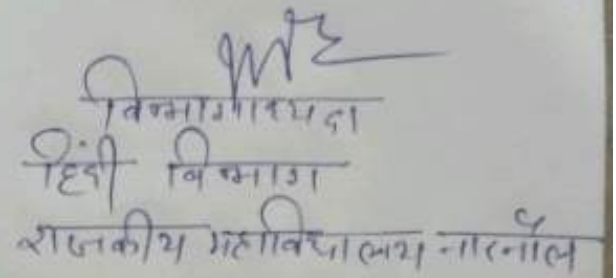 विभागाध्यक्ष
हिंदी विभाग
राजकीय महाविद्यालय नारनौल